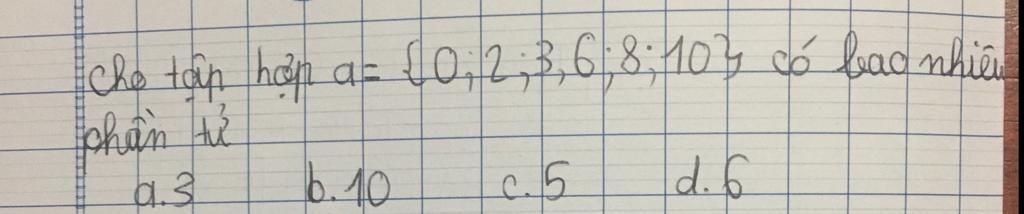 Cho tập hợp a = {0; 2; 3, 6; 8; 10} có bao nhiêu
phần tử
a. 3 b. 10 c. 5 d. 6